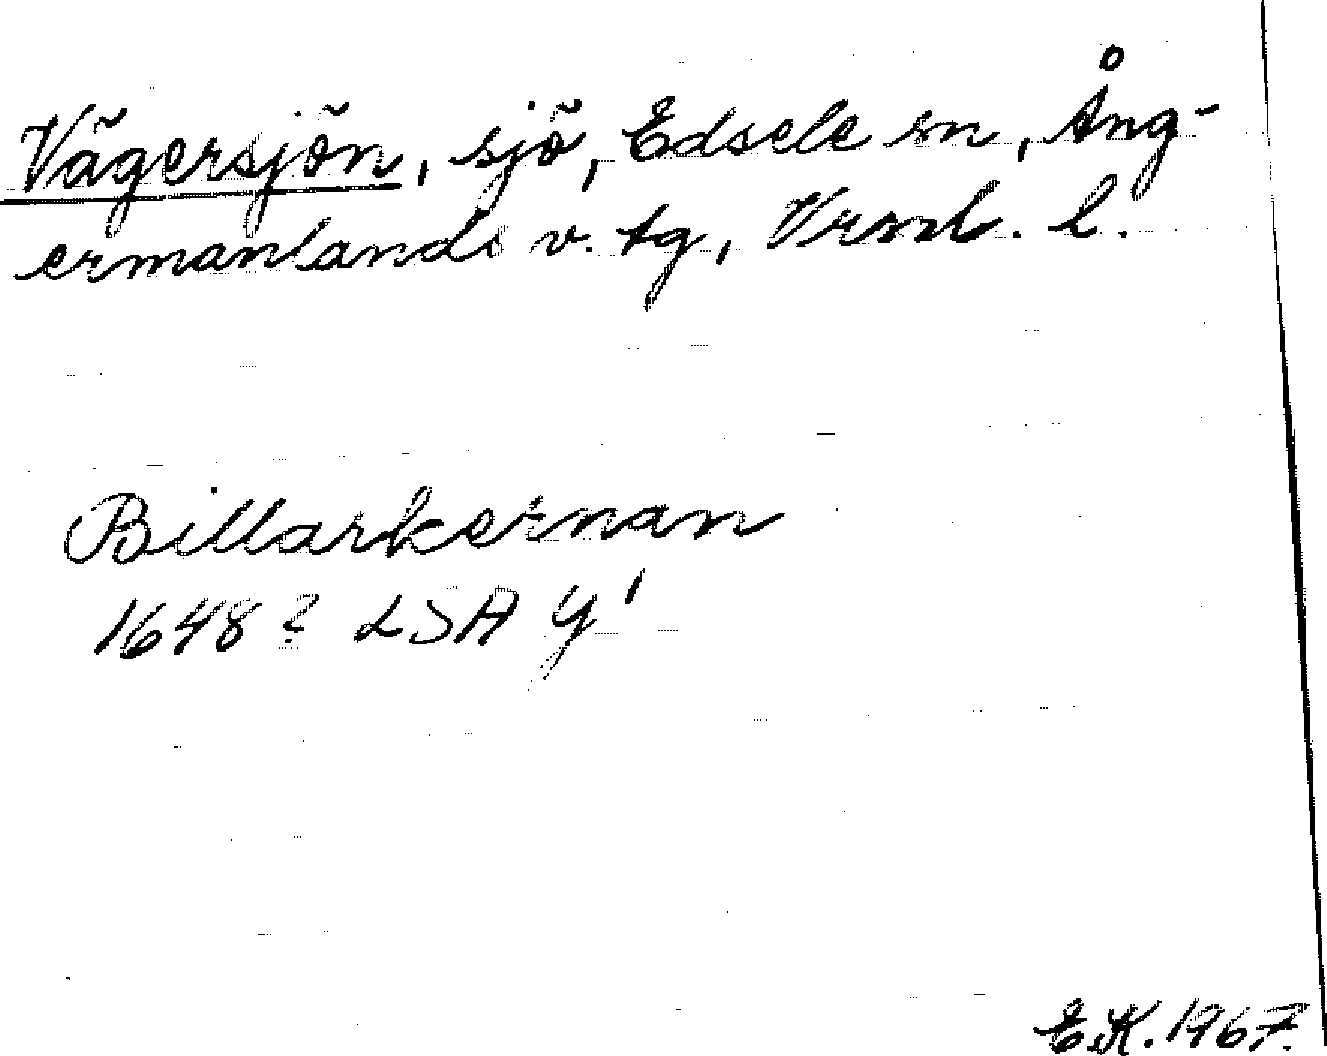 Vägersjön, sjö, Edsele sn, Ång-
ermanlands v. tg, Vrnl. l.
Billarkernan
1648? LSA Y 1
E.K. 1967.